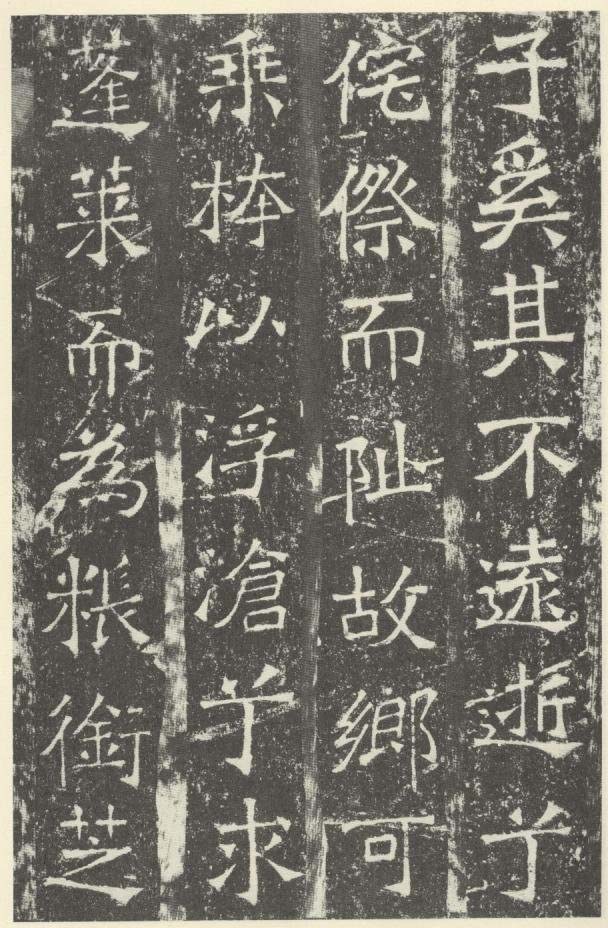 子奚其不遠逝兮
侘傺而阯故鄉可
乗以浮滄兮求
蓬萊而為粻銜芝